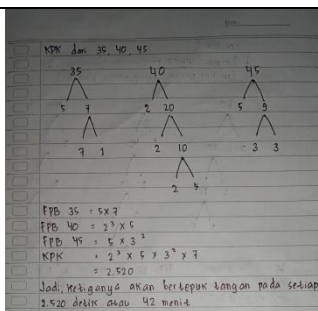 KPK dari 35, 40, 45
35 40 45
5 7 2 20 5 9
7 1 2 10 3 3
2 5
FPB 35 = 5 x 7
FPB 40 = 2³ x 5
FPB 45 = 5 x 3²
KPK = 2³ x 5 x 3² x 7
= 2.520
Jadi, ketiganya akan bertepuk tangan pada setiap
2.520 detik atau 42 menit